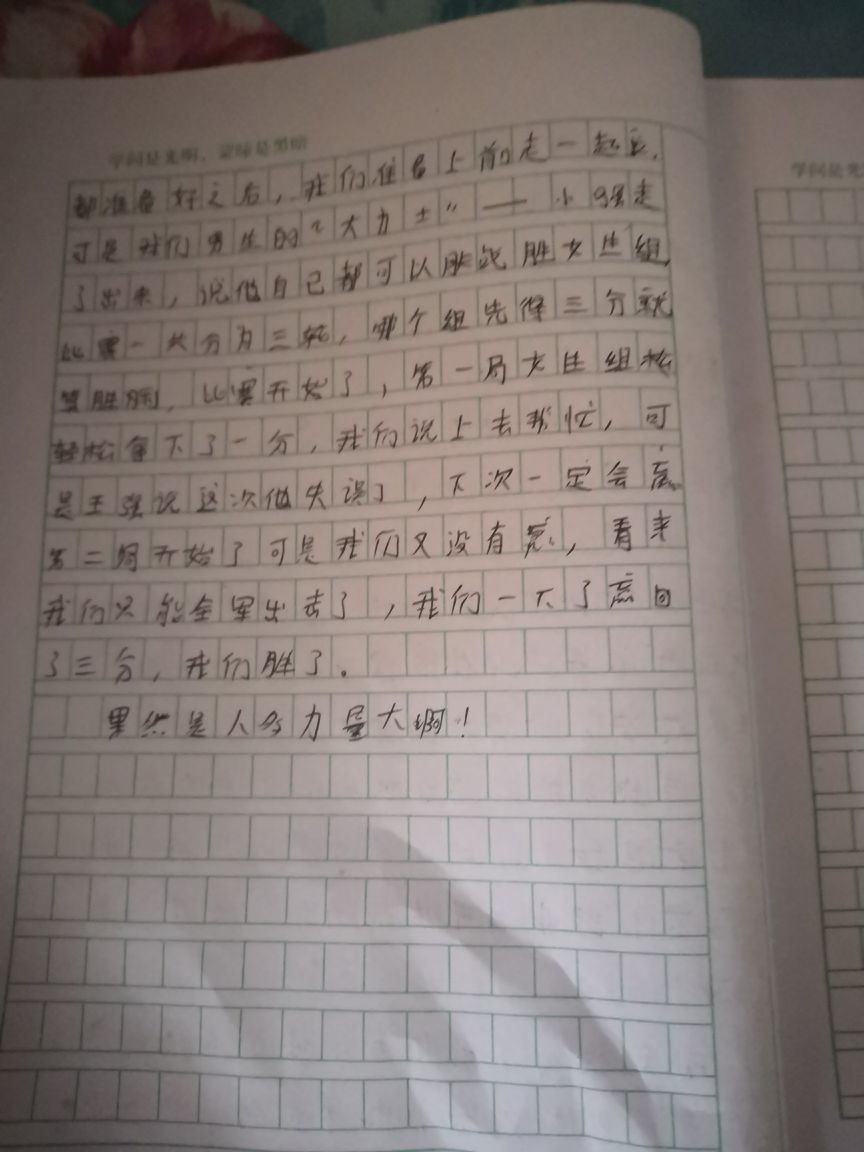 学问是光明，蒙昧是黑暗
学问是光
都准备好之后，我们准备上前走一起
可是我们男生的“大力士”——小强走
了出来，说他自己都可以战胜女生组，
比赛一共分为三轮，哪个组先得三分就
算胜啊，比赛开始了，第一局女生组松
轻松拿下了一分，我们说上去帮忙，可
是王强说这次他失误了，下次一定会赢。
第二局开始了可是我们又没有赢，看来
我们只能全军出击了，我们一下了赢回
了三分，我们胜了。
果然是人多力量大啊！